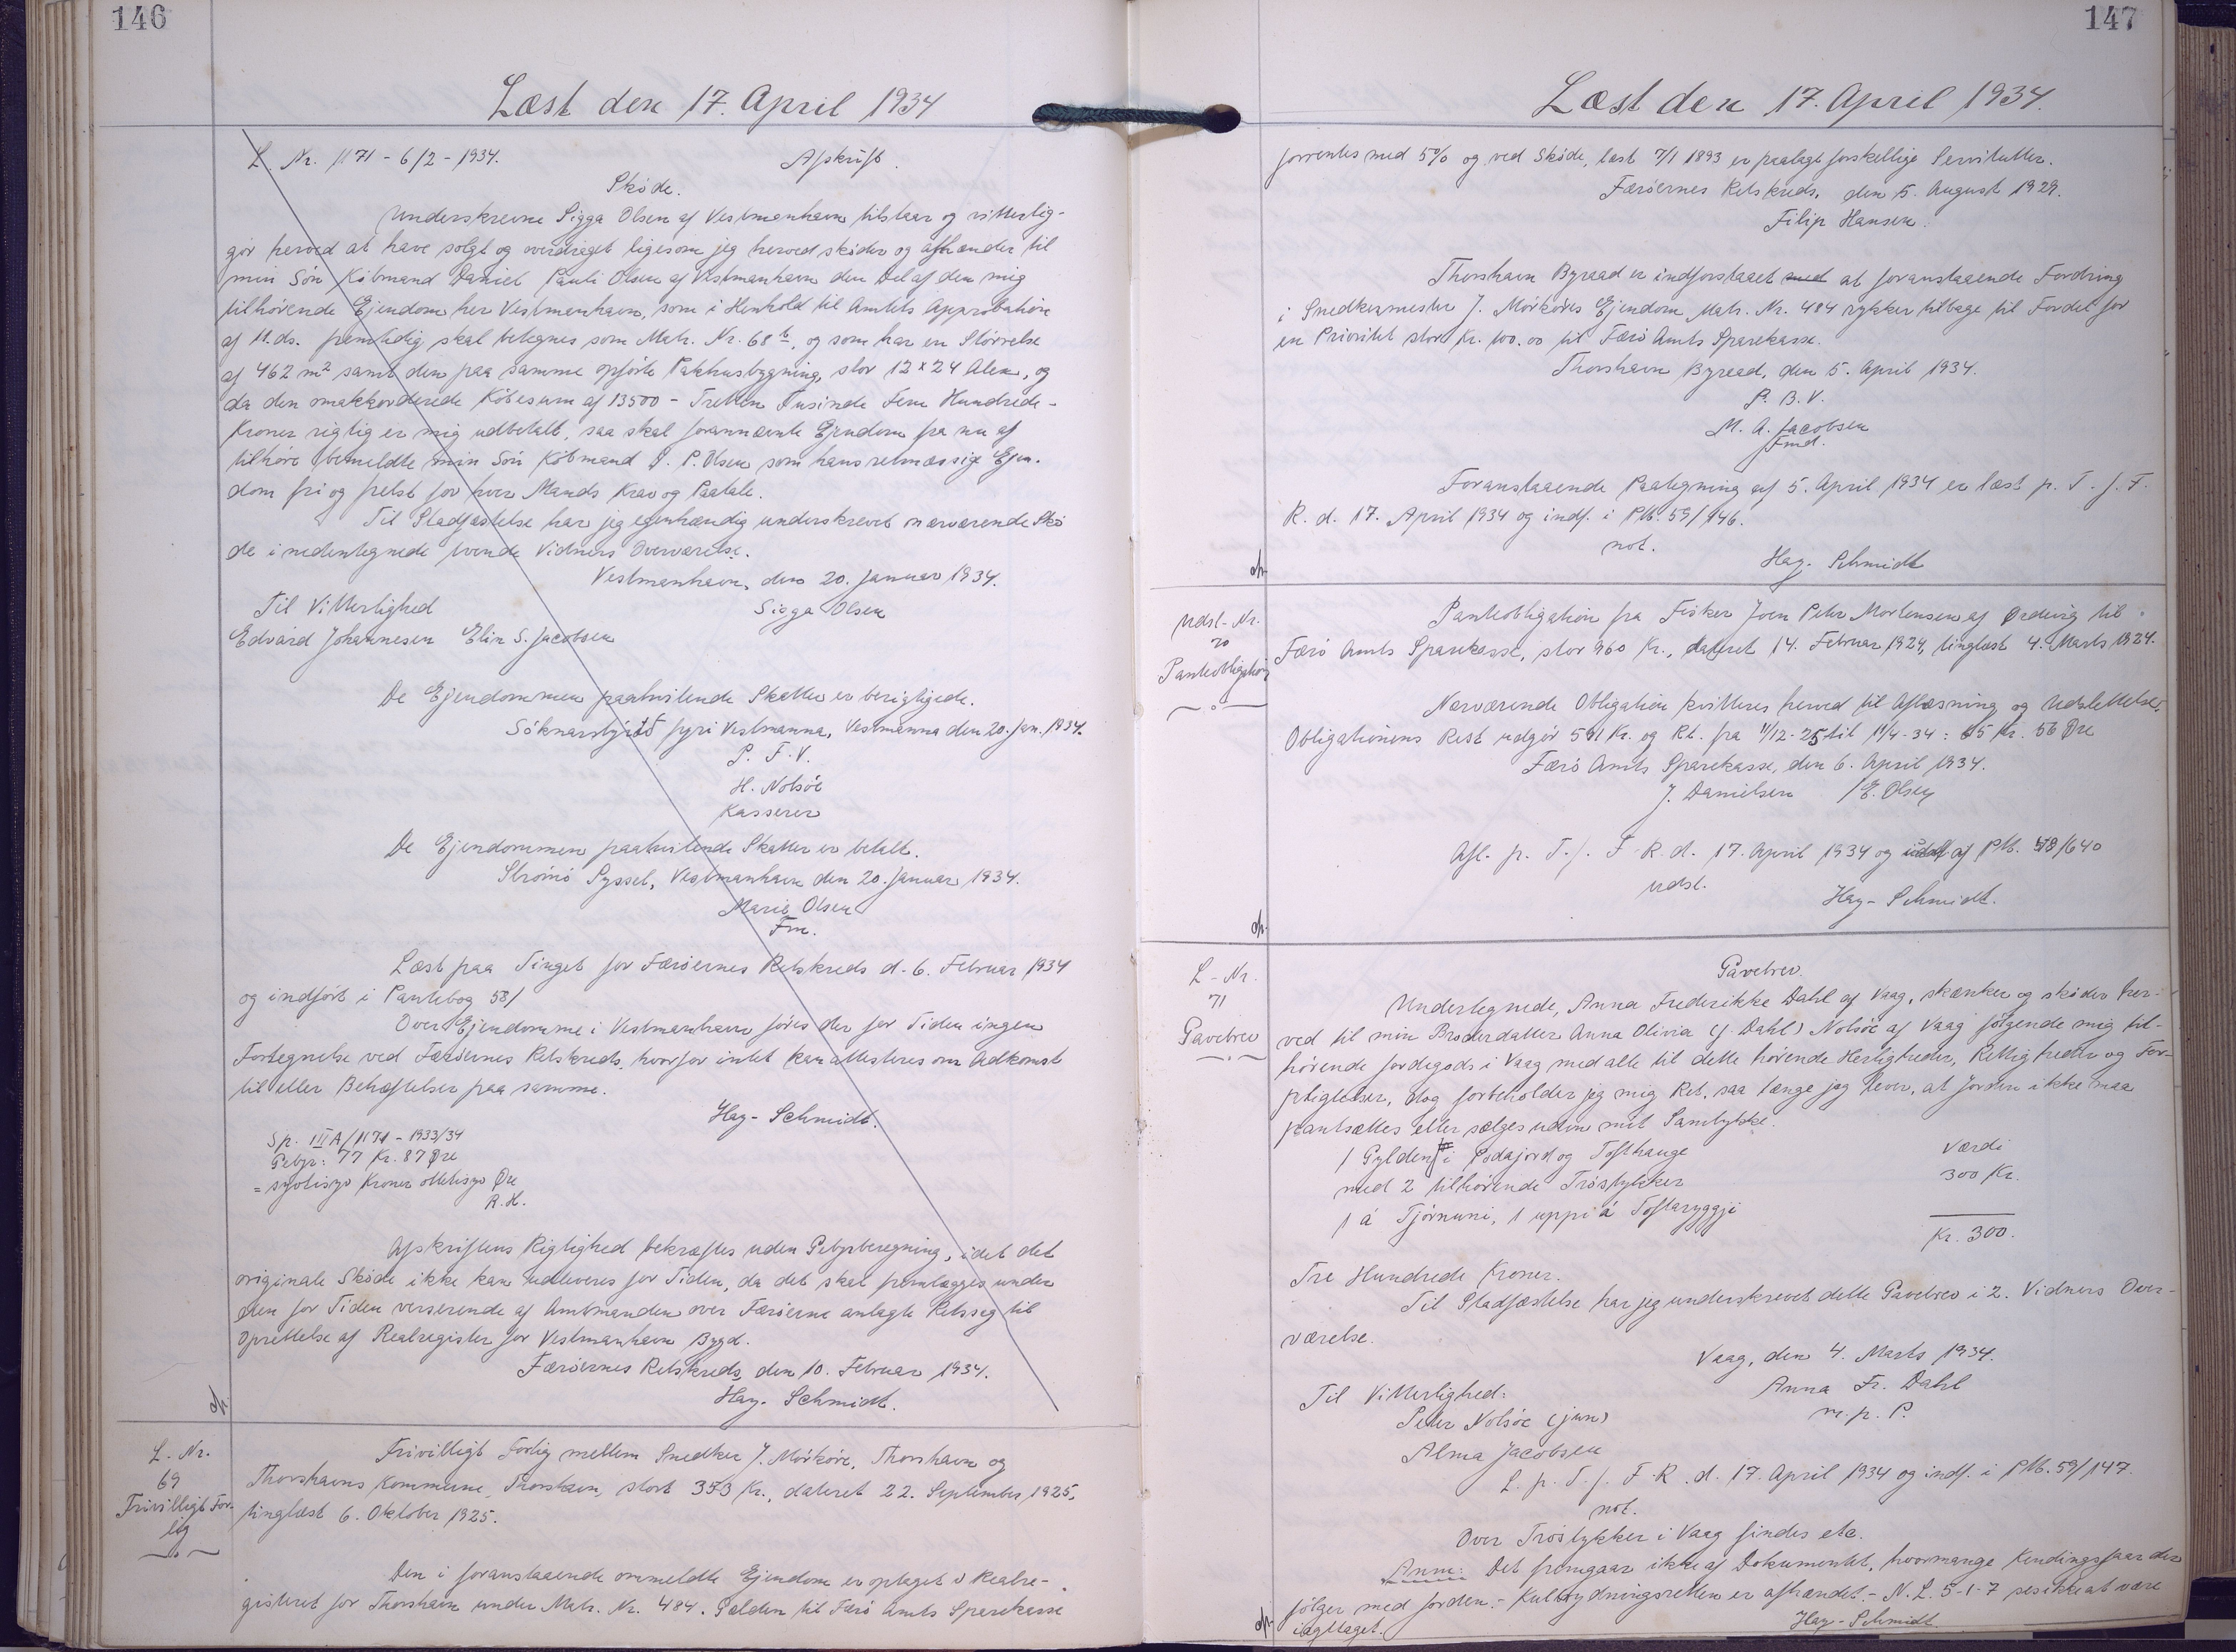 146
Læst den 17. April 1934
L. Nr. 1171 - 6/2 - 1934. Afskrift.
Skøde.
Underskrevne Sigga Olsen af Vestmanhavn tilstaar og vitterlig-
gør herved at have solgt og overdraget ligesom jeg herved skøder og afhænder til
min Søn Købmand Daniel Pauli Olsen af Vestmanhavn den Del af den mig
tilhørende Ejendom her Vestmanhavn, som i Henhold til Amtets Approbation
af 11. ds. fremtidig skal betegnes som Matr. Nr. 68 b, og som har en Størrelse
af 462 m² samt den paa samme opførte Pakhusbygning, stor 12 x 24 Alen, og
da den omakkorderede Købesum af 13500 - Tretten Tusinde Fem Hundrede -
Kroner rigtig er mig udbetalt, saa skal forannævnte Ejendom fra nu af
tilhøre bemeldte min Søn Købmand D. P. Olsen som hans retmæssige Ejen-
dom fri og frelst for hver Mands Krav og Paatale.
Til Stadfæstelse har jeg egenhændig underskrevet nærværende Skø
de i nedentegnede tvende Vidners Overværelse.
Vestmanhavn, den 20. Januar 1934.
Til Vitterlighed Sigga Olsen
Edvard Johannesen Elin S. Jacobsen
De Ejendommen paahvilende Skatter er berigtigede.
Sóknarstýrið fyri Vestmanna, Vestmanna den 20. Jan. 1934.
P. F. V.
H. Nolsøe
Kasserer
De Ejendommen paahvilende Skatter er betalt.
Strømø Syssel, Vestmanhavn den 20. Januar 1934.
Marie Olsen
Fm.
Læst paa Tinget for Færøernes Retskreds d. 6. Februar 1934
og indført i Pantebog 58/
Over Ejendomme i Vestmanhavn føres der for Tiden ingen
Fortegnelse ved Færøernes Retskreds, hvorfor intet kan attesteres om Adkomst
til eller Behæftelser paa samme.
Hay-Schmidt.
Sp. III A/1171 - 1933/34
Gebyr: 77 Kr. 87 Øre
= syvtisyv Kroner ottetisyv Øre
R. H.
Afskriftens Rigtighed bekræftes uden Gebyrberegning, idet det
originale Skøde ikke kan udleveres for Tiden, da det skal fremlægges under
den for Tiden verserende af Amtmanden over Færøerne anlagte Retssag til
Oprettelse af Realregister for Vestmanhavn Bygd.
Færøernes Retskreds, den 10. Februar 1934.
Hay-Schmidt.
L. Nr.
69
Frivilligt For-
lig
Frivilligt Forlig mellem Snedker J. Mørkøre, Thorshavn og
Thorshavns Kommune, Thorshavn, stort 353 Kr., dateret 22. September 1925,
tinglæst 6. Oktober 1925.
Den i foranstaaende ommeldte Ejendom er optaget i Realre-
gisteret for Thorshavn under Matr. Nr. 484. Gælden til Færø Amts Sparekasse
147
Læst den 17. April 1934.
forrentes med 5% og ved Skøde, læst 7/1 1893 er paalagt forskellige Servitutter.
Færøernes Retskreds, den 5. August 1929.
Filip Hansen.
Thorshavn Byraad er indforstaaet med at foranstaaende Fordring
i Snedkermester J. Mørkøres Ejendom Matr. Nr. 484 rykker tilbage til Fordel for
en Prioritet stor Kr. 100.00 til Færø Amts Sparekasse.
Thorshavn Byraad, den 5. April 1934.
P. B. V.
M. A. Jacobsen
Fmd.
Foranstaaende Paategning af 5. April 1934 er læst p. T. f. F.
R. d. 17. April 1934 og indf. i PB. 59/146.
not.
Hay-Schmidt
Udsl. Nr.
20
Panteobligation
Panteobligation fra Fisker Joen Peter Mortensen af Ørdevig til
Færø Amts Sparekasse, stor 960 Kr., dateret 14. Februar 1924, tinglæst 4. Marts 1924.
Nærværende Obligation kvitteres herved til Aflæsning og Udslettelse.
Obligationens Rest udgør 561 Kr. og Rt. fra 11/12-25 til 11/4-34: 65 Kr. 56 Øre
Færø Amts Sparekasse, den 6. April 1934.
J. Danielsen /E. Olsen
Afl. p. T. f. F. R. d. 17. April 1934 og udsl. af PB. 48/640
udsl.
Hay-Schmidt.
L. Nr.
71
Gavebrev
Gavebrev.
Undertegnede, Anna Frederikke Dahl af Vaag, skænker og skøder her-
ved til min Broderdatter Anna Olivia (f. Dahl) Nolsøe af Vaag følgende mig til-
hørende Jordegods i Vaag med alle til dette hørende Herligheder, Rettigheder og For-
pligtelser, dog forbeholder jeg mig Ret, saa længe jeg lever, at Jorden ikke maa
pantsættes eller sælges uden mit Samtykke.
Værdi
1 Gylden i Podajord og Tofthauge
med 2 tilhørende Trøstykker 300 Kr.
1 á Tjørnuni, 1 uppi á Toftaryggji
Kr. 300.
Tre Hundrede Kroner.
Til Stadfæstelse har jeg underskrevet dette Gavebrev i 2. Vidners Over-
værelse.
Vaag, den 4. Marts 1934.
Til Vitterlighed: Anna Fr. Dahl
Peter Nolsøe (jun) m. p. P.
Alma Jacobsen
L. p. T. f. F. R. d. 17. April 1934 og indf. i PB. 59/147.
not.
Over Trøstykker i Vaag findes etc.
Anm: Det fremgaar ikke af Dokumentet, hvormange Kendingsfaar der
følger med Jorden. - Kulbrydningsretten er afhændet. - N. L. 5-1-7 ses ikke at være
iagttaget. Hay-Schmidt.